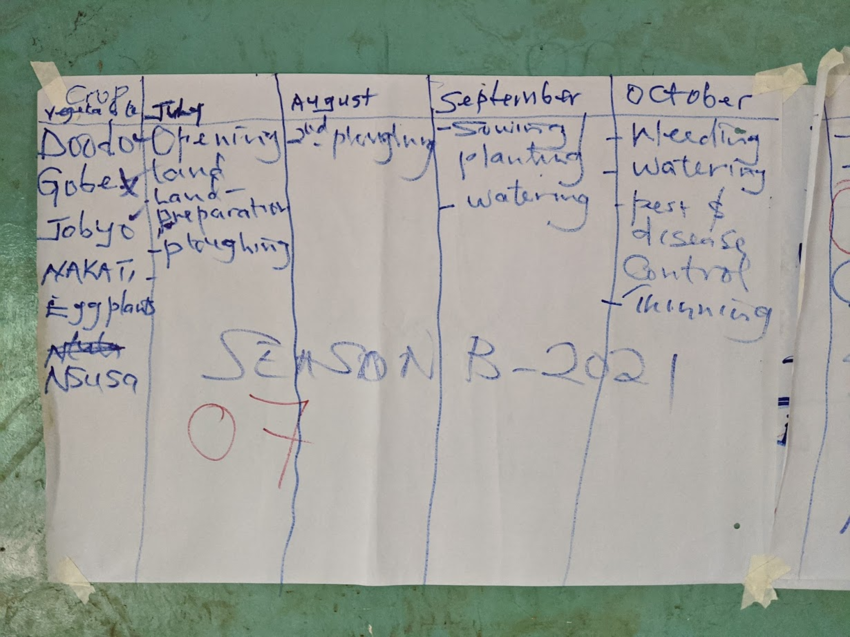 Crop
vegetable
Doodo
Gobe
Jobyo
NAKATI
Eggplants
Nsusa
July
Opening
land
Land
preparation
ploughing
August
2nd ploughing
September
- Sowing/
planting
- watering
October
- Weeding
- watering
- Pest &
disease
Control
- Thinning
SEASON B-2021
07